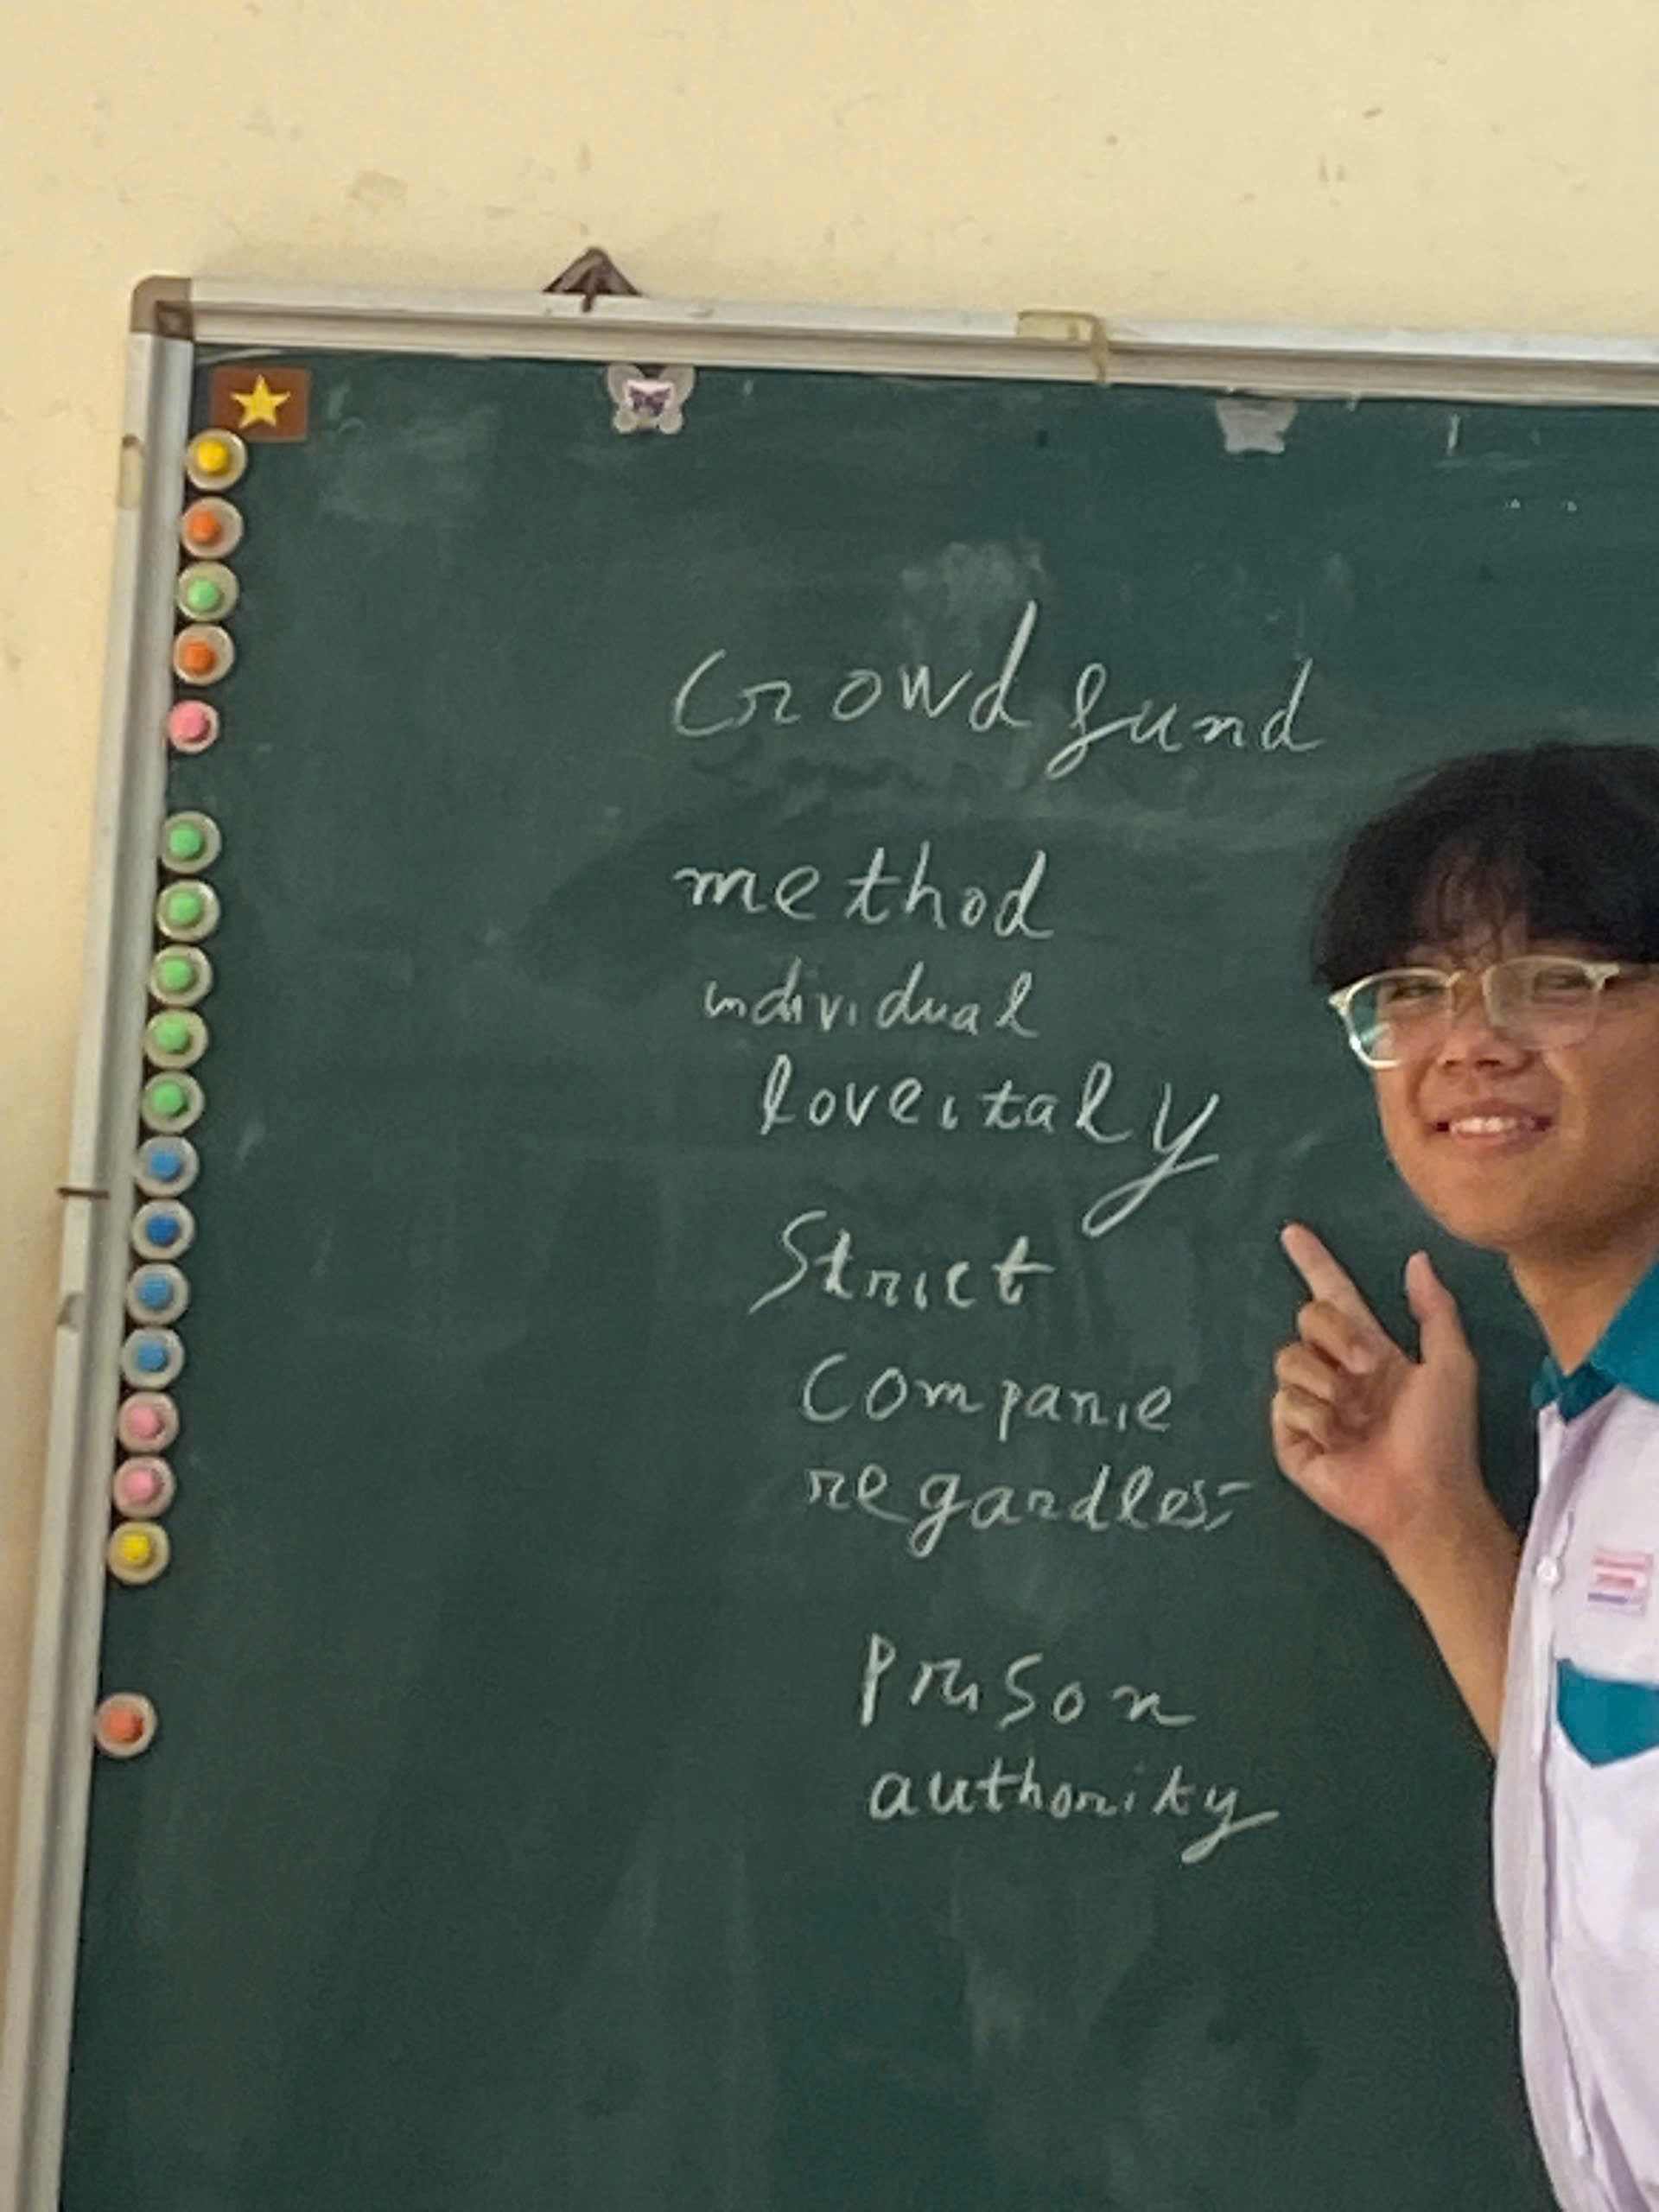 Crowdfund
method
individual
loveitaly
Strict
Companie
regardless
prison
authority